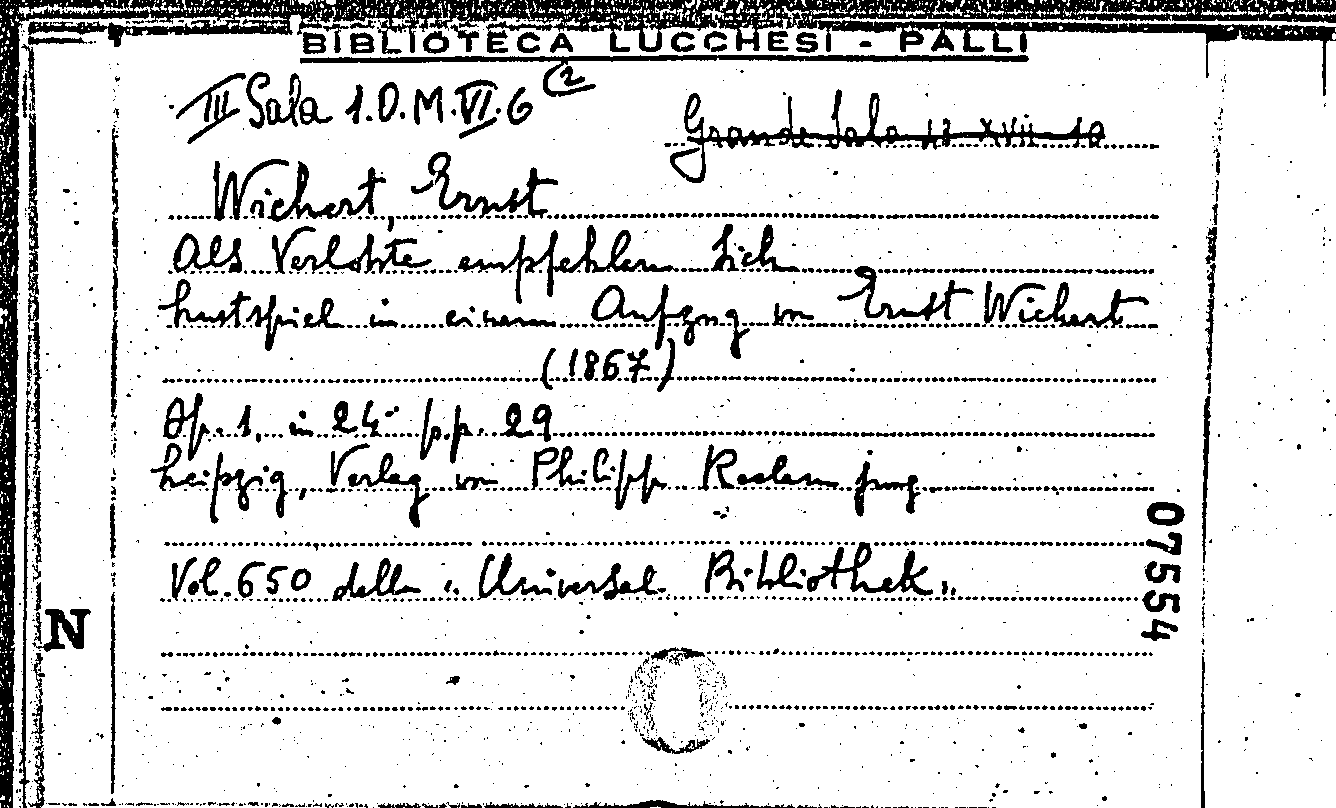 BIBLIOTECA LUCCHESI - PALLI
III Sala 1.D.M.VI.6 (2
Grande Sala 18 XVII 10
Wichert, Ernst
Als Verlobte empfehlen sich
Lustspiel in einem Aufzug von Ernst Wichert
(1867)
Op. 1, in 24° p.p. 29
Leipzig, Verlag von Philipp Reclam jung.
Vol. 650 della "Universal Bibliothek"
N
07554